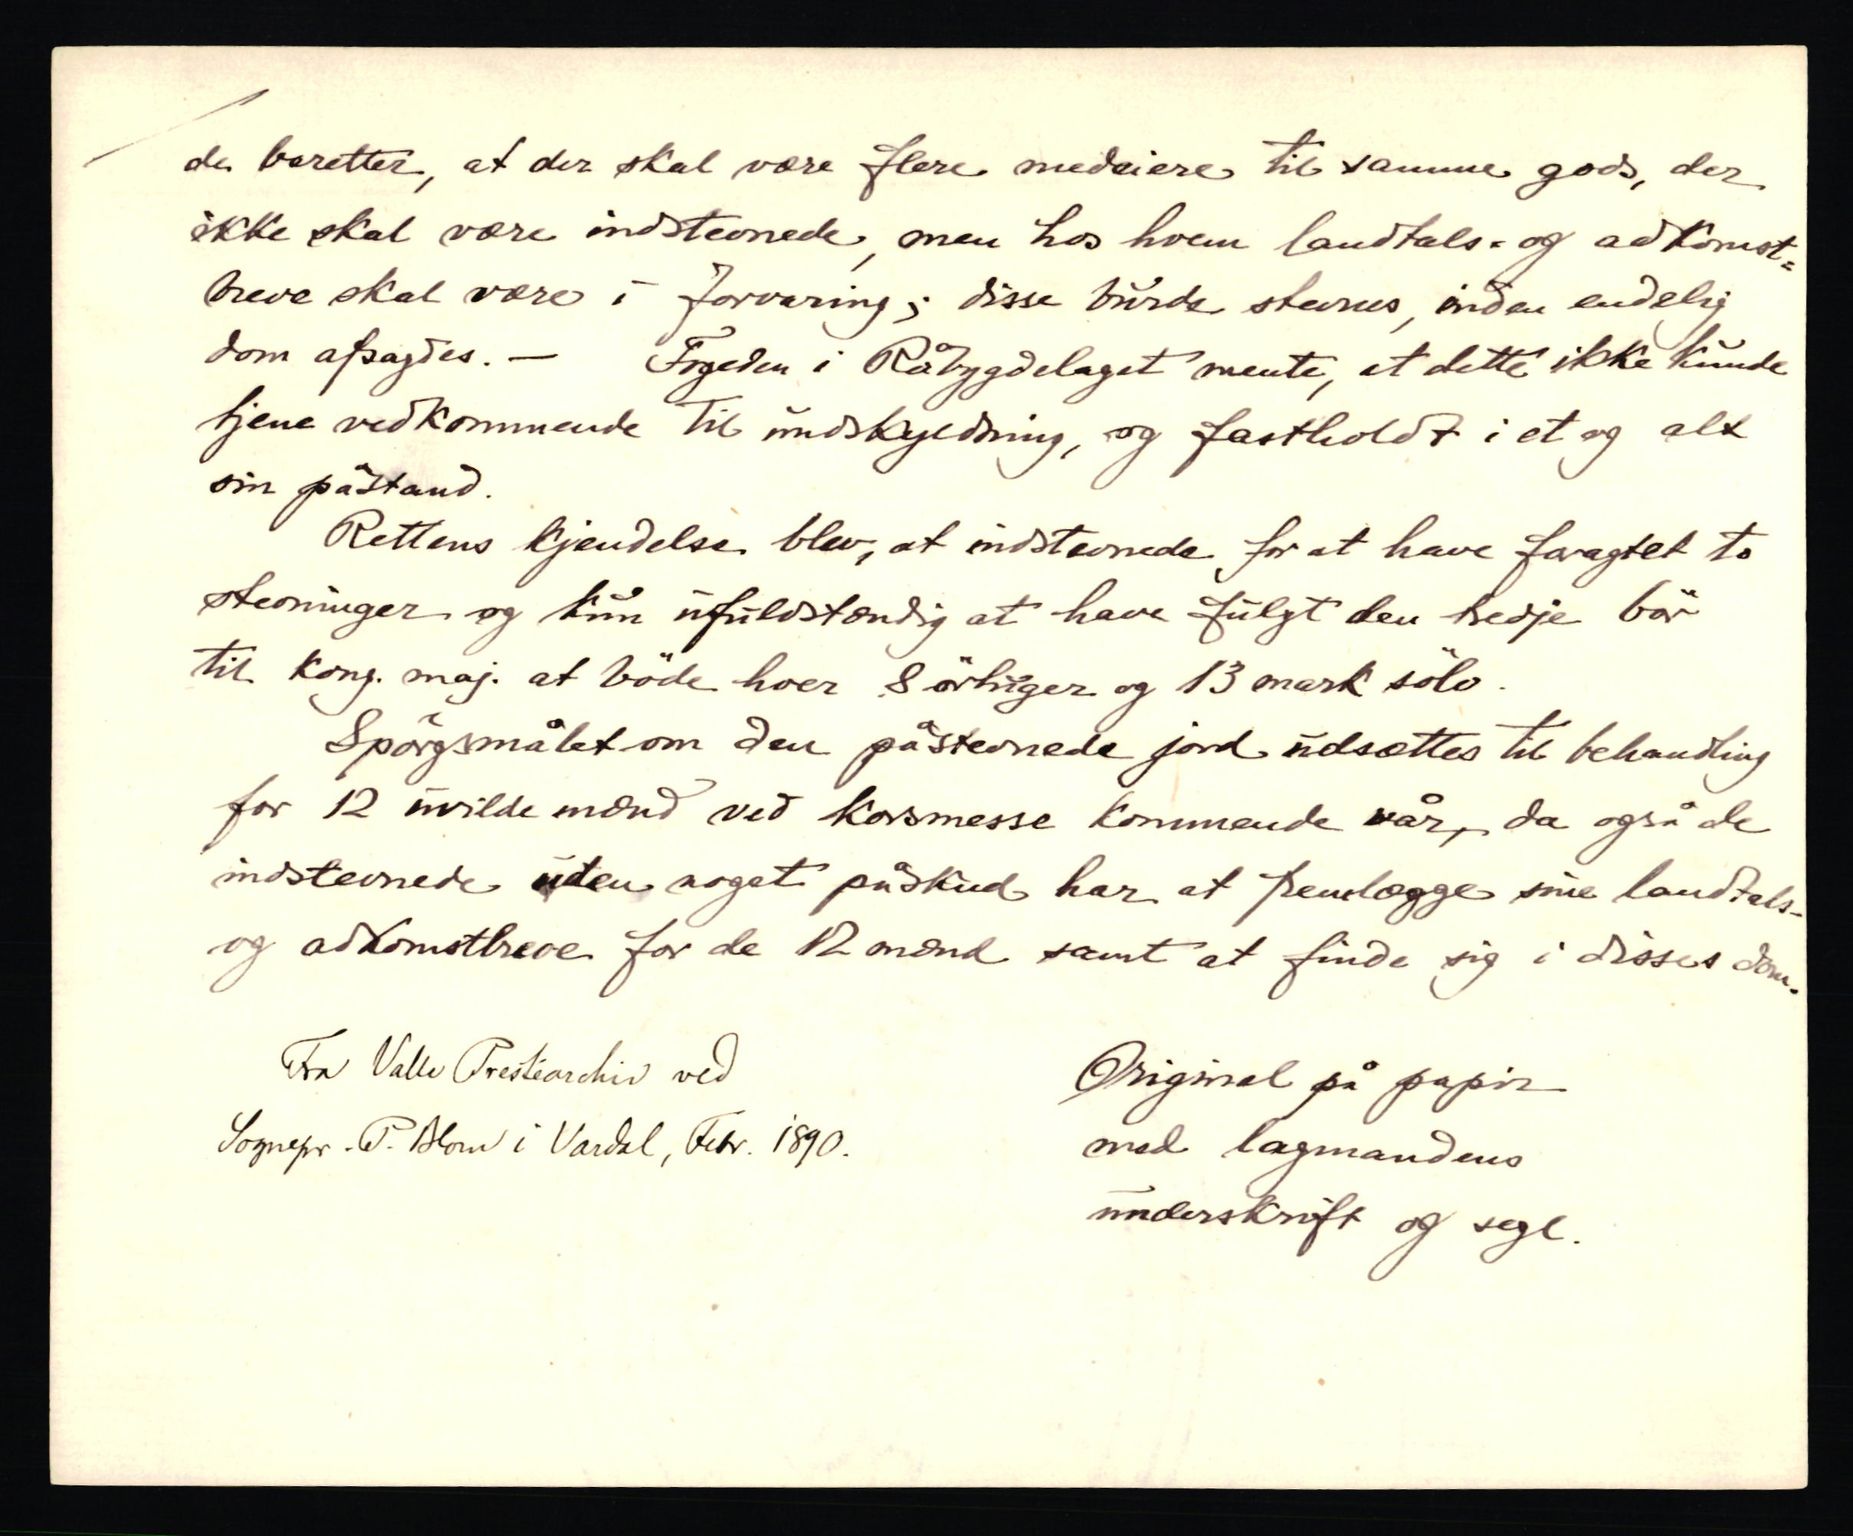 de beretter, at der skal være flere medeiere til samme gods, der
ikke skal være indstevnede, men hos hvem landtals- og adkomst=
breve skal være i forvaring; disse burde stevnes, inden endelig
dom afsagdes. — Fogeden i Råbygdelaget mente, at dette ikke kunde
tjene vedkommende til undskyldning, og fastholdt i et og alt
sin påstand.
Rettens kjendelse blev, at indstevnede for at have foragtet to
stevninger og kun ufuldstændig at have fulgt den tredje bör
til kong. maj. at böde hver 8 örtuger og 13 mark sölv.
Spörgsmålet om den påstevnede jord udsættes til behandling
for 12 uvilde mænd ved korsmesse kommende vår, da også de
indstevnede uten noget påskud har at fremlægge sine landtals-
og adkomstbreve for de 12 mænd samt at finde sig i disses dom.
Fra Valle Prestearchiv ved
Sognepr. P. Blom i Vardal, Febr. 1890.
Original på papir
med lagmandens
underskrift og segl.